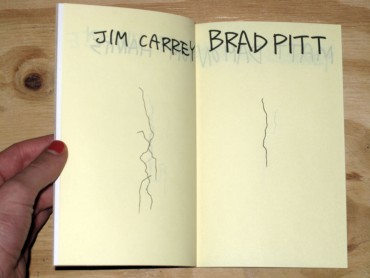 JIM CARREY
BRAD PITT